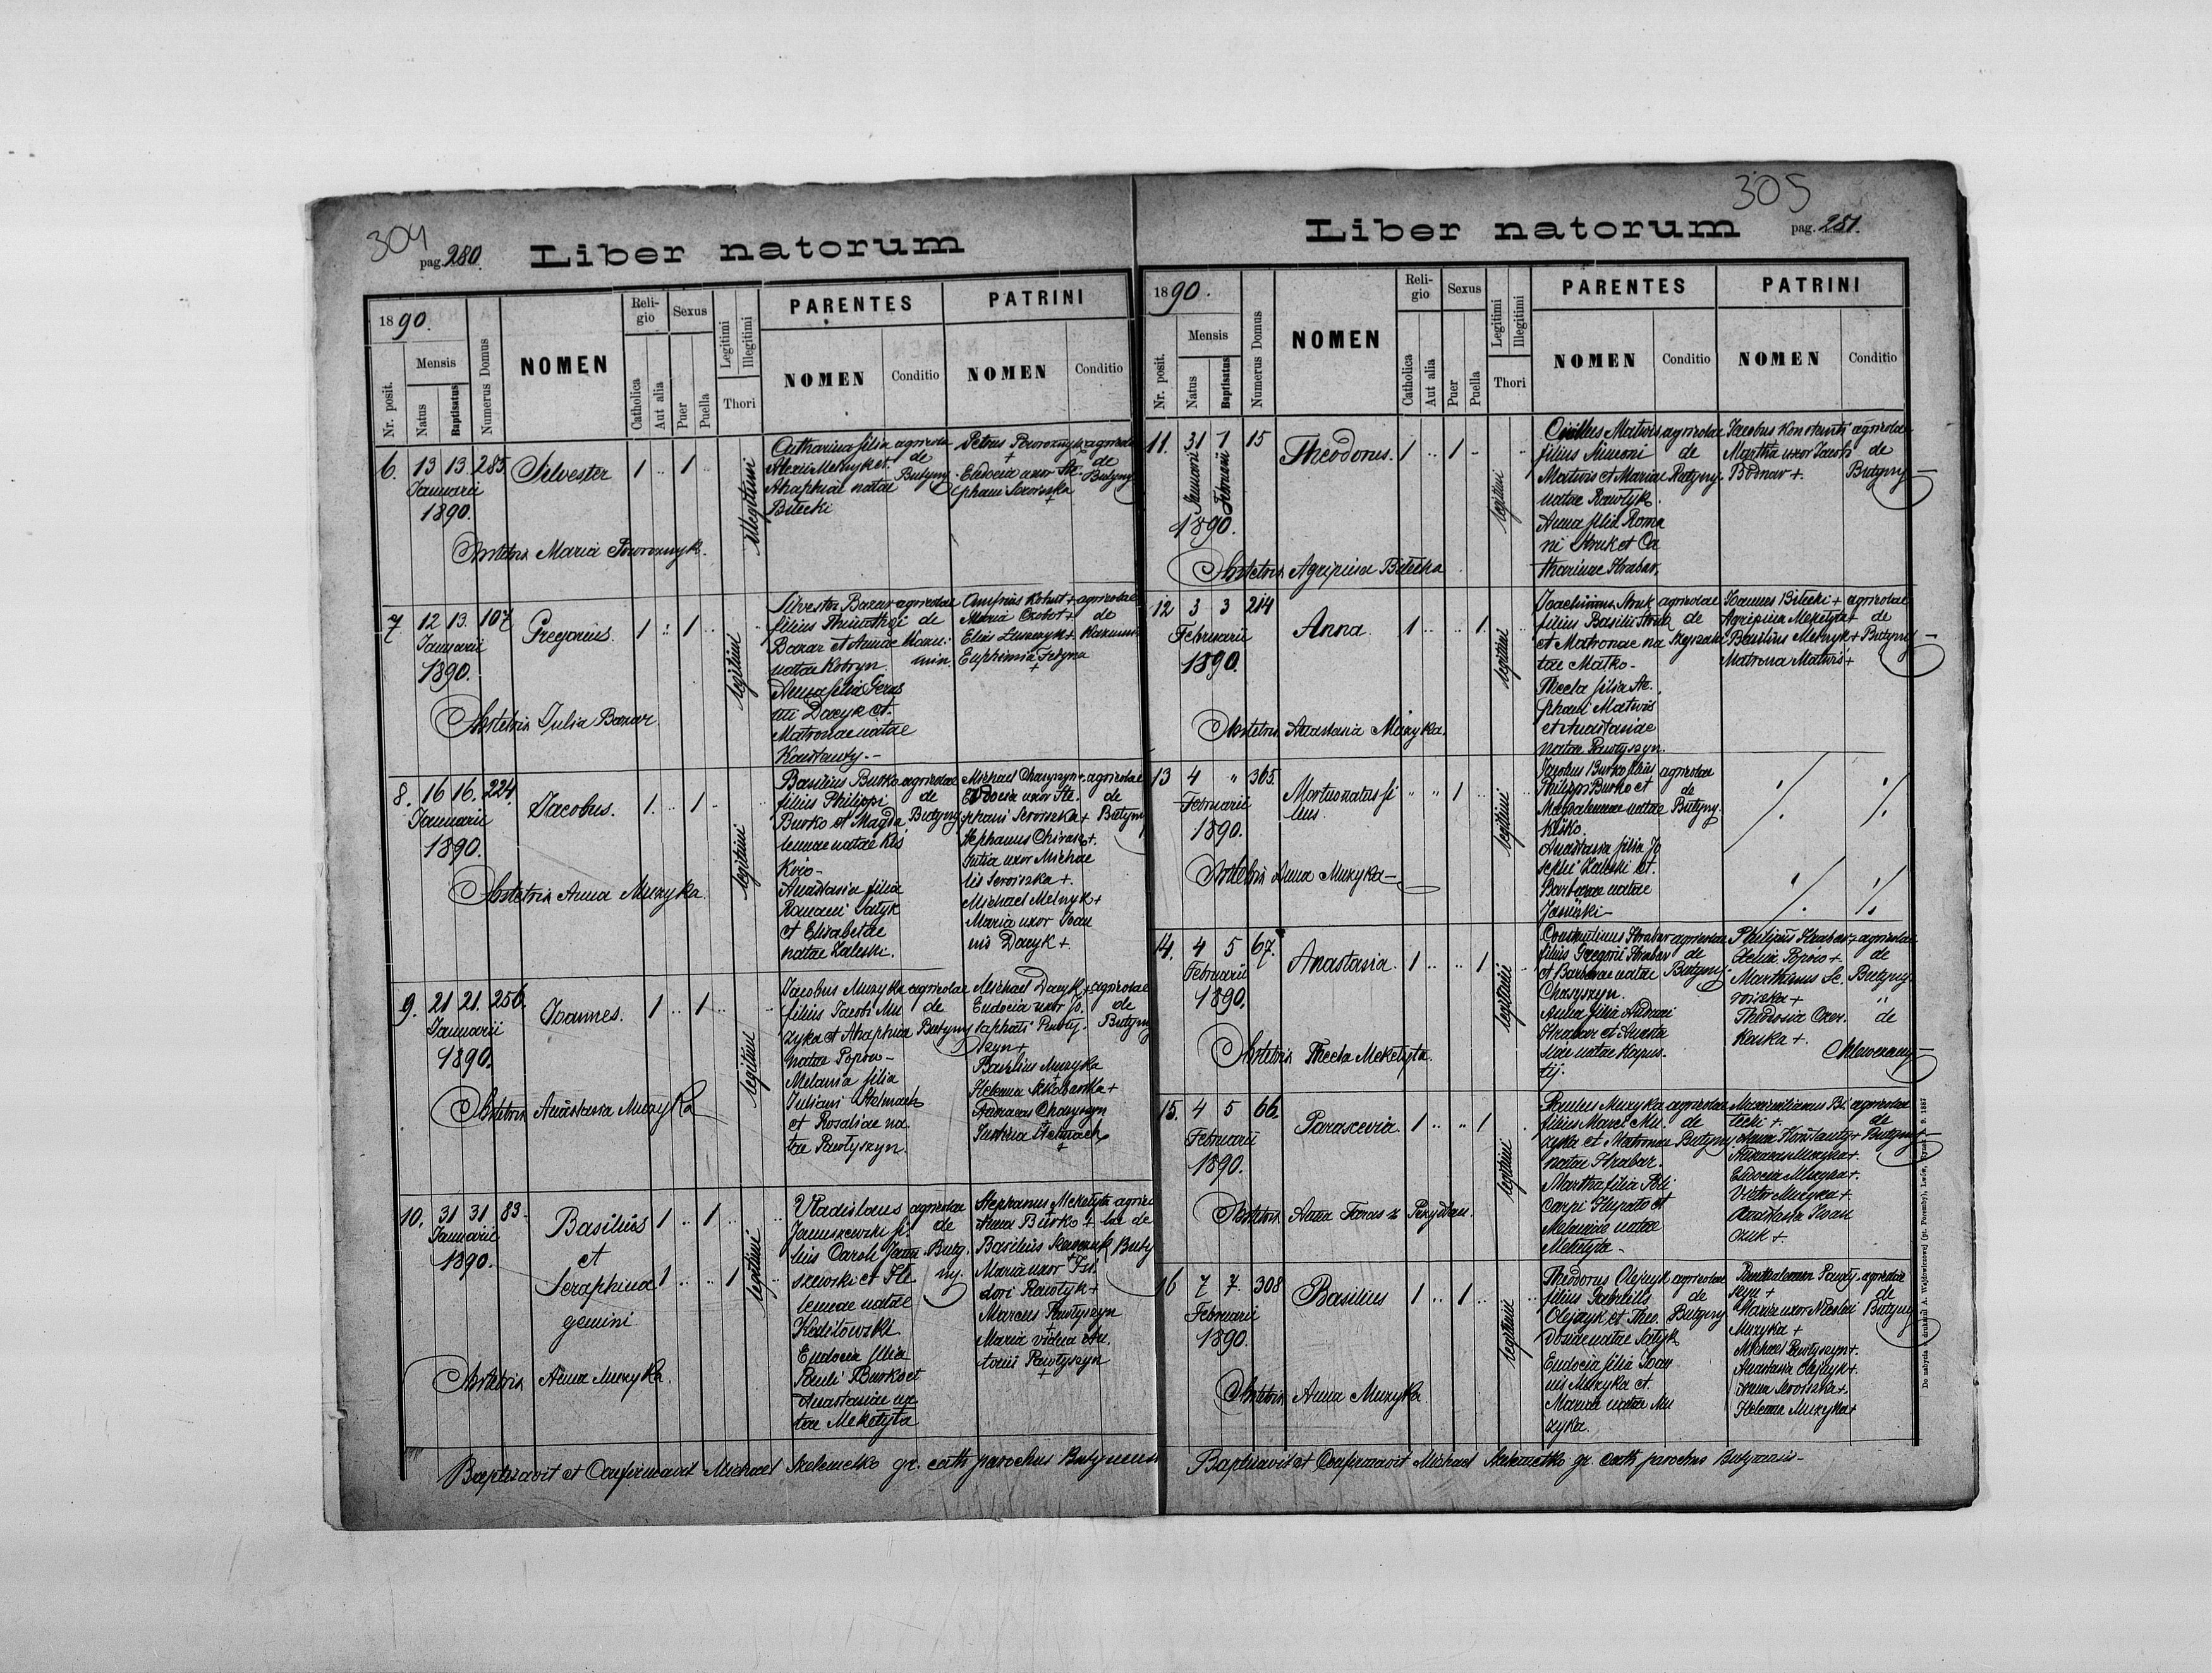 304
pag. 280.
Liber natorum
1890.
Nr. posit.
Mensis
Natus
Baptisatus
Numerus Domus
NOMEN
Religio
Catholica
Aut alia
Sexus
Puer
Puella
Legitimi
Illegitimi
Thori
PARENTES
NOMEN
Conditio
PATRINI
NOMEN
Conditio
6. 13 13. 285 Silvester 1 .. 1 ..
Januarii
1890.
illegitimi
Catharina filia
Alexii Melnyk et
Ahaphiae natae
Bilecki
agricola
de
Butyny
Petrus Poworoznyk
+
Eudocia uxor Ste-
phani Seroiszka
+
agricolae
de
Butyny
Obstetrix Maria Poworoznyk.
7. 12 13. 107 Gregorius. 1 .. 1 ..
Januarii
1890.
legitimi
Silvester Bazar
filius Thimothei
Bazar et Annae
natae Kobryn
Anna filia Geras
imi Dacyk et
Matronae natae
Konstanty.-
agricolae
de
Onufrius Kohut +
Maria Czobot +
Elias Luszczyk +
Euphimia Fedyna
+
agricolae
de
Obstetrix Julia Bazar
8. 16 16. 224. Jacobus. 1. .. 1 ..
Januarii
1890.
legitimi
Basilius Burko
filius Philippi
Burko et Magda
lenae natae Kis
Anastasia filia
Romani Satyk
et Elisabetae
natae Zaleski.
agricolae
de
Butyny
Michael Charyszyn +
Eudocia uxor Ste-
phani Seroiszka +
Stephanus +.
Julia uxor Michae
lis Seroiszka +.
Michael Melnyk +
Maria uxor Joan
nis Dacyk +
agricolae
de
Butyny
Obstetrix Anna Muzyka
9. 21 21. 256. Joannes. 1 .. 1 ..
Januarii
1890.
legitimi
Jacobus Muzyka
filius Jacobi Mu
zyka et Ahaphiae
natae Popow -
Melania filia
Juliani Stelmach
et Rosaliae na
tae Pawlyszyn.
agricolae
de
Butyny
Michael Dacyk +
Eudocia uxor Jo.
saphati Pawly-
szyn +
Basilius Muzyka
+
Helena +
Andreas Charyszyn
Justina Stelmach
+
agricolae
de
Butyny
Obstetrix Anastasia Muzyka
10. 31 31 83. Basilius 1 .. 1 ..
Januarii
1890.
et
Seraphina 1 .. .. 1
gemini
legitimi
Vladislaus
Januszewski fi-
lius Caroli Janu
szewski et He
lenae natae
Eudocia filia
Pauli Burko et
Anastasiae na
tae Mekelyta
agricolae
de
Buty.
ny.
Stephanus Mekelyta
Anna Burko +
Basilius
Maria uxor Isi.
dori Pawlyk +
Marcus Pawlyszyn
+
Maria vidua An.
tonii Pawlyszyn
+
agrico
lae de
Buty
Obstetrix Anna Muzyka.
Baptisavit et Confirmavit Michael gr. cath. parochus Butynensis
305
Liber natorum
pag. 281.
1890.
Nr. posit.
Mensis
Natus
Baptisatus
Numerus Domus
NOMEN
Religio
Catholica
Aut alia
Sexus
Puer
Puella
Legitimi
Illegitimi
Thori
PARENTES
NOMEN
Conditio
PATRINI
NOMEN
Conditio
11. 31 1 15 Theodorus. 1 .. 1 ..
Januarii
Februarii
1890.
legitimi
Cirillus Matwis
filius Simeoni
Matwis et Mariae
natae Pawlyk.
Anna filia Roma
ni Struk et Ca
tharinae Hrabar.
agricolae
de
Butyny.
Jacobus Konstanti
Martha uxor Jacobi
Bodnar +.
agricolae
de
Butyny
Obstetrix Agripina Bilecka
12 3 3 214 Anna. 1 .. .. 1.
Februarii
1890.
legitimi
Joachimus Struk
filius Basilii Struk
et Matronae na
tae Matko -
Thecla filia Ste.
phani Matwis
et Anastasiae
natae Pawlyszyn.
agricolae
de
Joannes Bilecki +
Agripina Mekelyta +
Basilius Melnyk +
Matrona Matwis +
agricolae
de
Butyny
Obstetrix Anastasia Muzyka.
13 4 " 365 Mortuo natus fi 1 ..
lius
Februarii
1890.
legitimi
Jacobus Burko filius
Philippi Burko et
Magdalenae natae
Kisko.
Anastasia filia Jo
sephi Zaleski et
Barbarae natae
Jasinski -
agricolae
de
Butyny.
Obstetrix Anna Muzyka -
14. 4 5 67. Anastasia. 1 .. .. 1.
Februarii
1890.
legitimi
Constantinus Hrabar
filius Gregorii Hrabar
et Barbarae natae
Charyszyn.
Anna filia Andreae
Hrabar et Anasta
siae natae Kapus-
tij.
agricolae
de
Butyny.
Philippus Hrabar +
Popow +.
Marthinus Se.
roiszka +
Theodosia
+.
agricolae
de
Butyny
"
de
Obstetrix Thecla Mekelyta.
15. 4 5 66. Parascevia. 1 .. .. 1
Februarii
1890.
legitimi
Paulus Muzyka
filius Marci Mu.
zyka et Matronae
natae Hrabar.
Martha filia Poli
carpi et
Melaniae natae
Mekelyta -
agricolae
de
Butyny
Maximilianus Bi.
lecki +.
Anna Konstanty +
Muzyka +.
Eudocia Muzyka +.
Victor Muzyka +.
Anastasia Iwan
czuk +.
agricolae
de
Butyny
Obstetrix Anna Taras z
16 7 7. 308 Basilius 1 .. 1 ..
Februarii
1890.
legitimi
Theodorus Olejnyk
filius Gabrielis
Olejnyk et Theo.
dosiae natae Satyk
Eudocia filia Joan
nis Muzyka et
Mariae natae Mu
zyka.
agricolae
de
Butyny
Panthalemon Pawly.
szyn +
Maria uxor Nicolai
Muzyka +
Michael Pawlyszyn +.
Anastasia Olejnyk +.
Anna Seroiszka +.
Helena Muzyka +
agricolae
de
Butyny
Obstetrix Anna Muzyka.
Baptisavit et Confirmavit Michael gr. cath. parochus Butynensis -